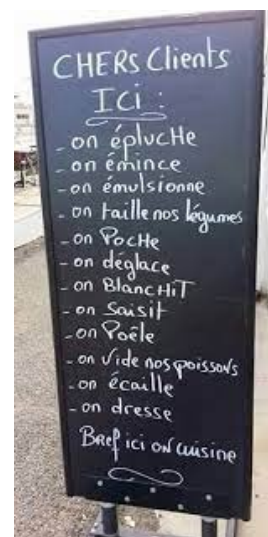 CHERS Clients
Ici :
- on éplucHe
- on émince
- on émulsionne
- on taille nos légumes
- on PocHe
- on déglace
- on BlancHiT
- on Saisit
- on Poêle
- on Vide nos poissons
- on écaille
- on dresse
Bref ici on cuisine